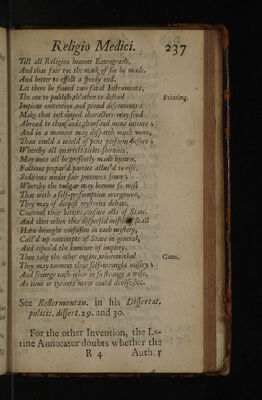 Religio Medici. 237
Till all Religion become Retrograde,
And that fair tye the mask of sin be made.
And better to effect a speedy end,
Let there be found two fatal Instruments,
The one to publish, th'other to defend
Impious contention, and proud discontents:
Make that instamped characters may send
Abroad to thousands, thousand mens intents;
And in a moment may dispatch much more,
Than could a world of pens perform before;
Whereby all quarrels, titles, secrecies,
May unto all be presently made known,
Factions prepar'd, parties allur'd to rise,
Seditions under fair pretences sown;
Whereby the vulgar may become so wise
That with a self-presumption overgrown,
They may of deepest mysteries debate,
Controul their betters, censure acts of State.
And then when this dispersed mischief shall
Have brought confusion in each mystery,
Call'd up contempts of State in general,
And ripen'd the humour of impiety,
Then take the other engine, wherewithal
They may torment their self-wrought misery;
And scourge each other in so strange a wise,
As time or tyrants never could devise, &c.
Printing.
Guns.
See Bellermontan. in his Dissertat.
politic. dissert. 29. and 30.
For the other Invention, the La-
tine Annotator doubts whether the
R 4 Auth. r